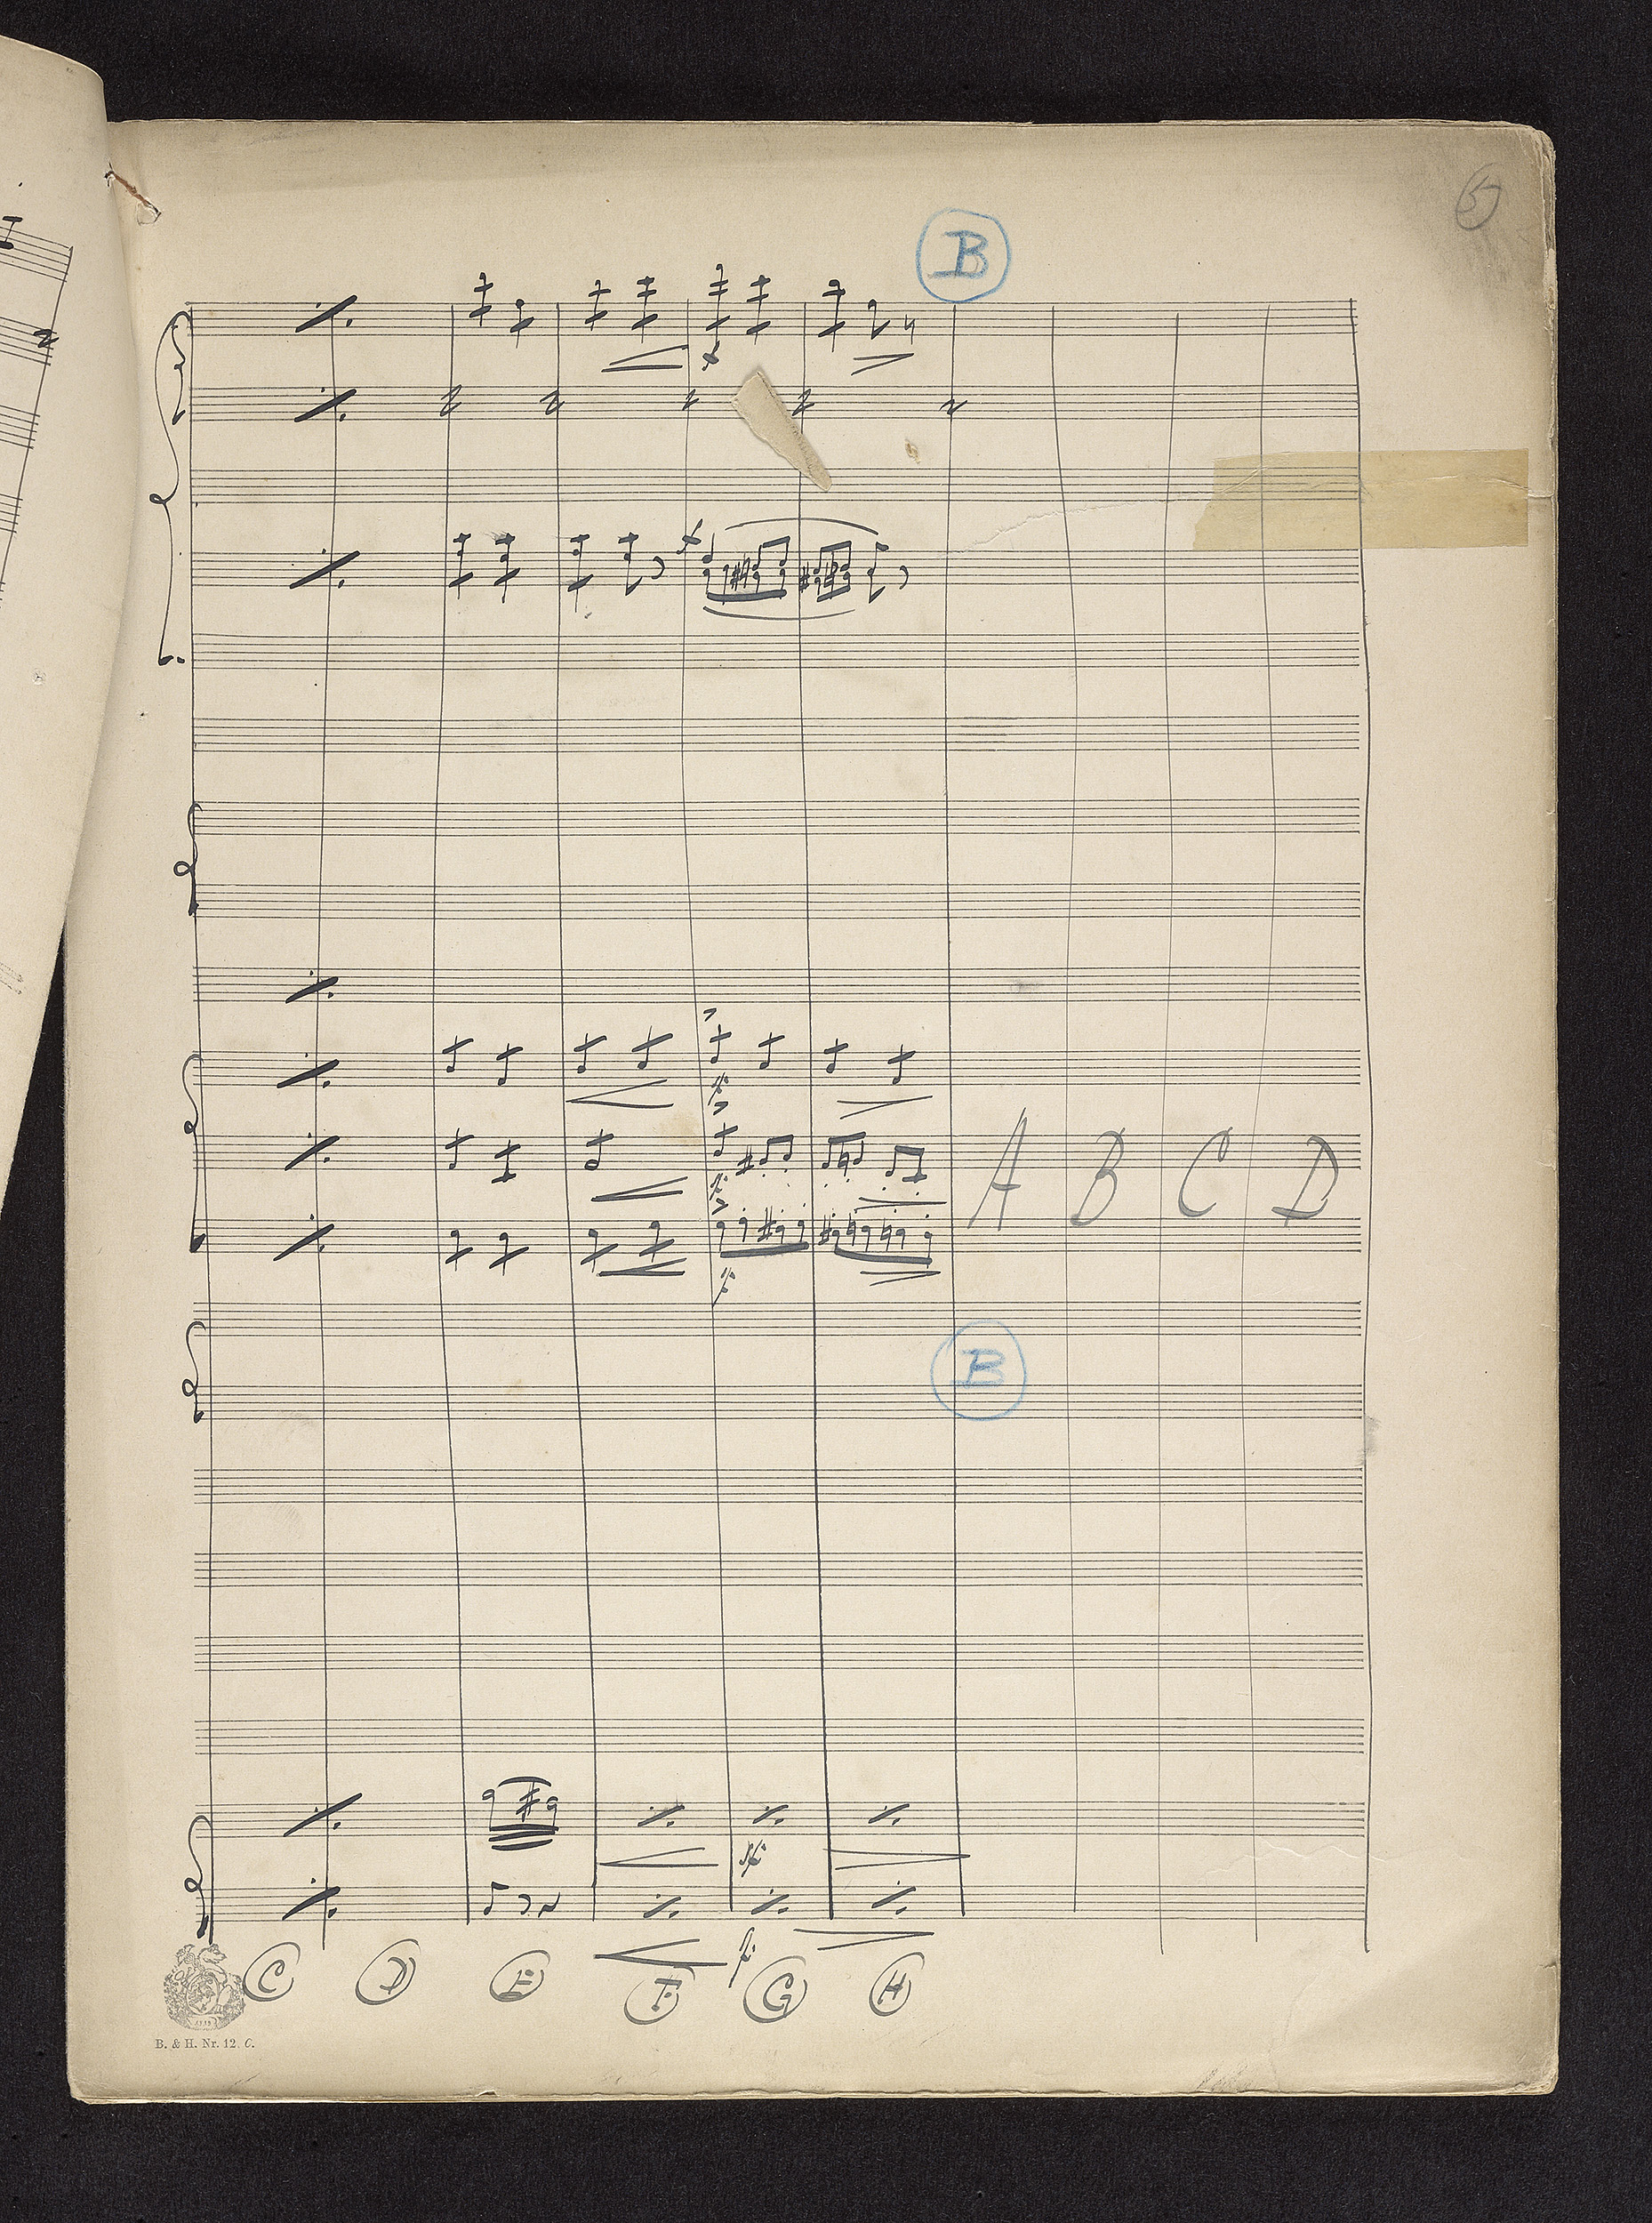 5
B
A B C D
B
C D E F G H
B. & H. Nr. 12. C.